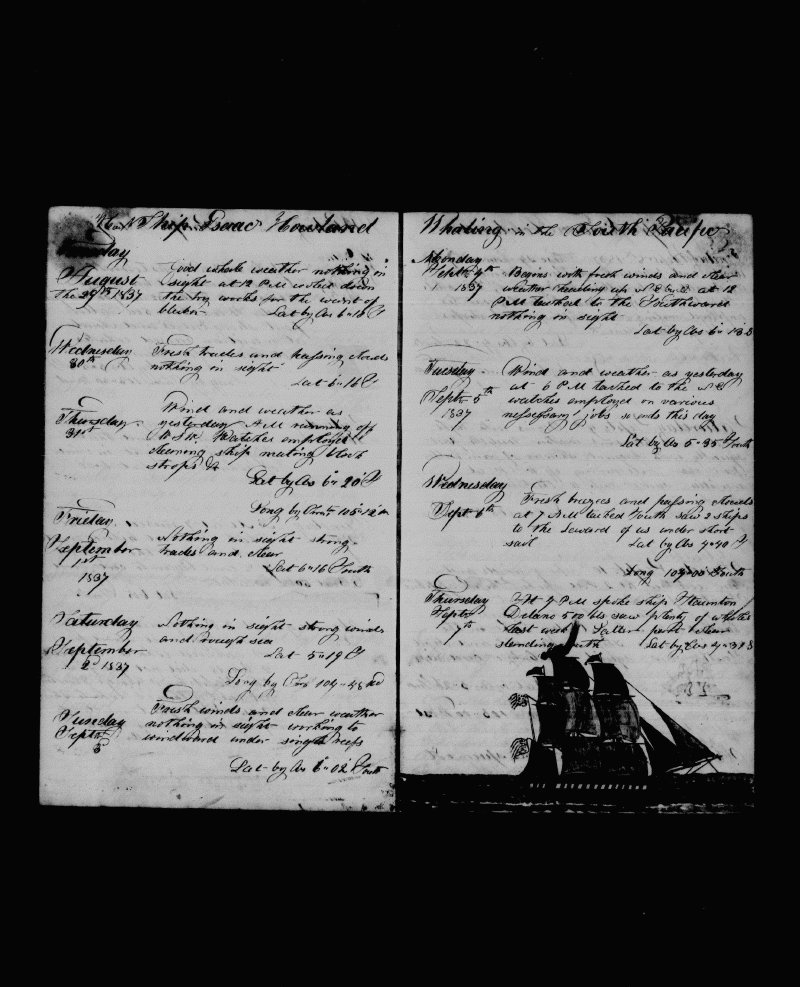 Ship Isaac Howland
Tuesday
August
the 29th 1837
Good whale weather nothing in
sight at 12 PM cooled down
the try works for the want of
blubber Lat by Obs 6" 10 S
Wednesday
30th
Fresh trades and passing clouds
nothing in sight
Lat 6" 16 S
Thursday
31st
Wind and weather as
yesterday AM running off
WSW. Watches employed
cleaning ship making block
strops &c
Lat by Obs 6" 20 S
Long by Chr 105" 12
Friday
September
1st
1837
Nothing in sight strong
trades and clear
Lat 6" 16 South
Saturday
September
2d 1837
Nothing in sight strong winds
and rough sea
Lat 5" 19 S
Long by Chr 104" 48
Sunday
Septr
3
Fresh winds and clear weather
nothing in sight working to
windward under single reefs
Lat by Obs 6" 02 South
Whaling in the South Pacific
Monday
Septr 4th
1837
Begins with fresh winds and clear
weather heading up at 12
PM tacked to the Southward
nothing in sight
Lat by Obs 6" 13 S
Tuesday
Septr 5th
1837
Wind and weather as yesterday
at 6 PM tacked to the NE
watches employed on various
jobs so ends this day
Lat by Obs 5" 35 South
Wednesday
Septr 6th
Fresh breezes and passing clouds
at 7 AM tacked South saw 2 ships
to the Leward of us under short
sail Lat by Obs 4" 40 S
Long 104" 00 South
Thursday
Septr
7th
At PM spoke ship
Delano 500 bls saw plenty of whales
last Latter part clear
standing south Lat by Obs 4" 31 S